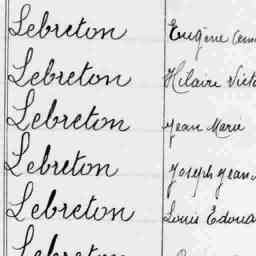 Lebreton Eugène
Lebreton Hilaire
Lebreton Jean Marie
Lebreton Joseph Jean
Lebreton Louis Edoua
Lebreton